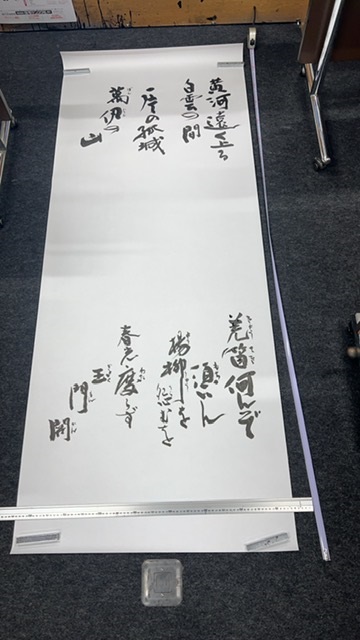 黄河遠く上る
白雲の間
一片の孤城
萬仞の
山
羌笛何んぞ
須いん
楊柳を
怨むを
春光度らず
玉
門
関